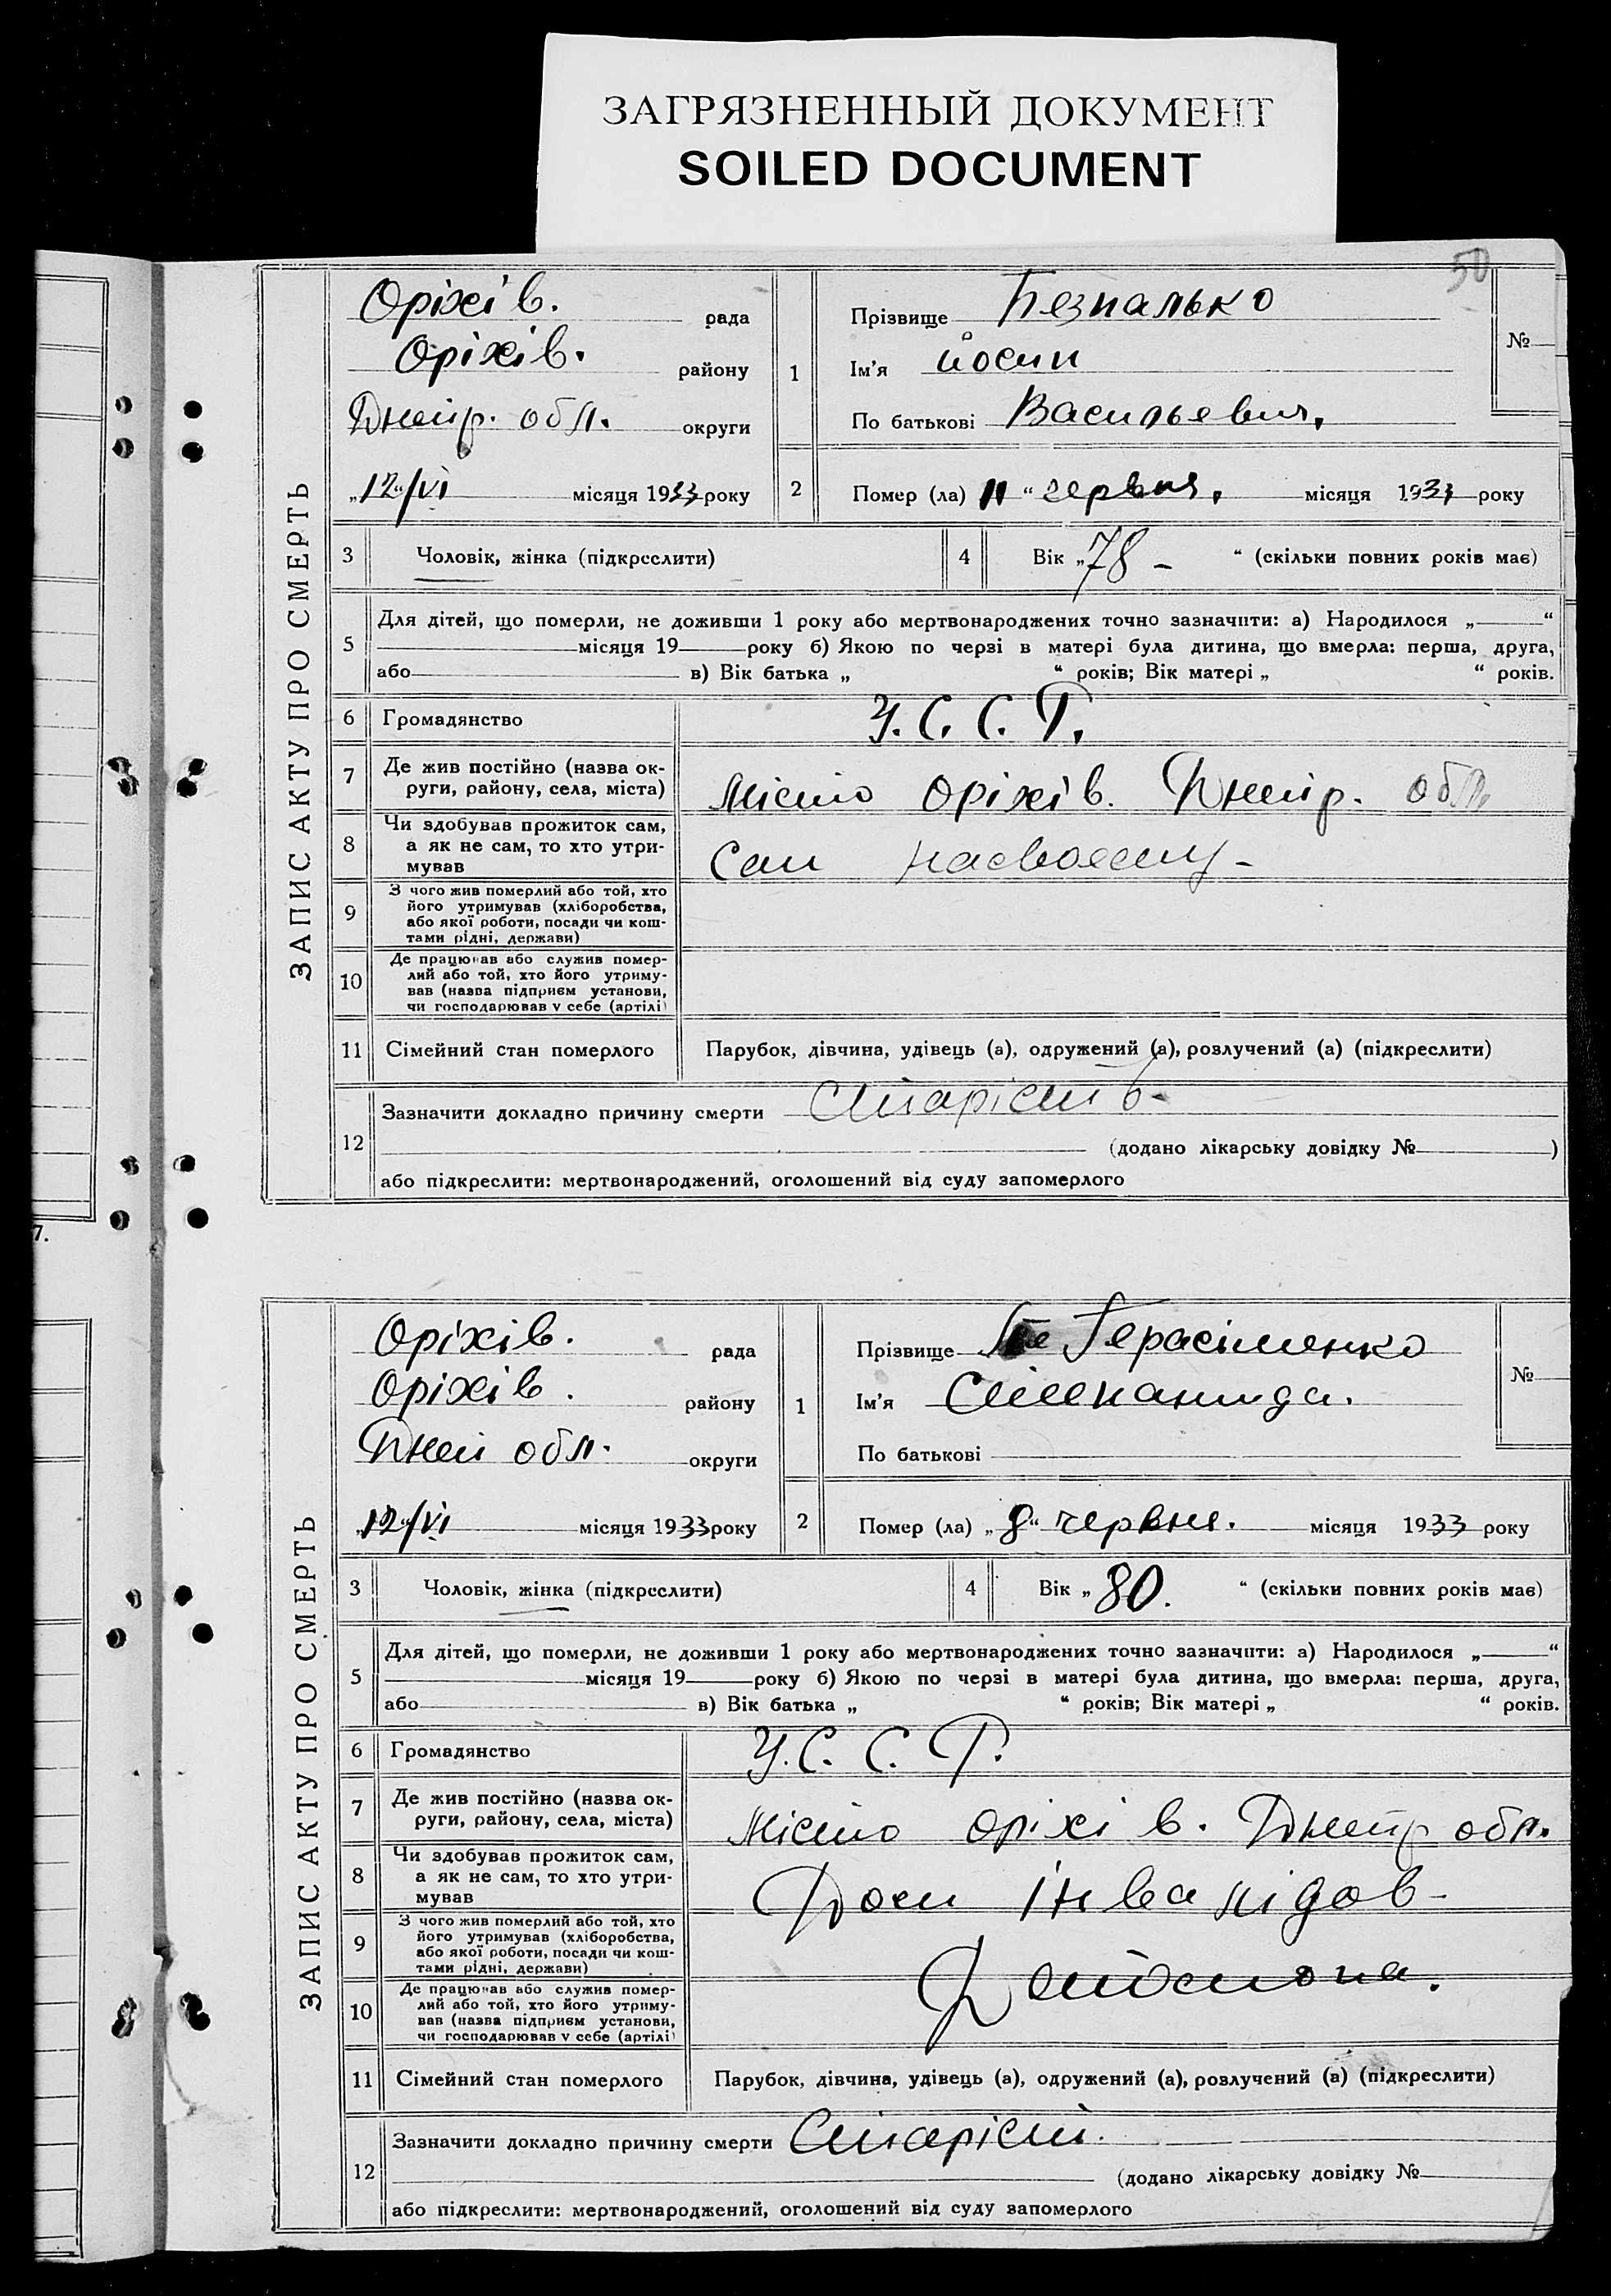 ЗАГРЯЗНЕННЫЙ ДОКУМЕНТ
SOILED DOCUMENT
50
ЗАПИС АКТУ ПРО СМЕРТЬ
Оріхів. рада
Оріхів. району
Днепр. обл. округи
„12“/VI місяця 1933 року
1
Прізвище Безпалько
Ім'я Йосип
По батькові Васильевич,
№
2 Помер (ла) 11 “ червня, місяця 1933 року
3 Чоловік, жінка (підкреслити)
4 Вік „78 - “ (скільки повних років має)
5 Для дітей, що померли, не доживши 1 року або мертвонароджених точно зазначити: а) Народилося „ “
місяця 19 року б) Якою по черзі в матері була дитина, що вмерла: перша, друга,
або в) Вік батька „ “ років; Вік матері „ “ років.
6 Громадянство У. С. С. Р.
7 Де жив постійно (назва ок-
руги, району, села, міста) Місто Оріхів. Днепр. обл.
8 Чи здобував прожиток сам,
а як не сам, то хто утри-
мував Сам
9 З чого жив померлий або той, хто
його утримував (хліборобства,
або якої роботи, посади чи кош-
тами рідні, держави)
10 Де працював або служив помер-
лий або той, хто його утриму-
вав (назва підприєм установи,
чи господарював у себе (артілі)
11 Сімейний стан померлого Парубок, дівчина, удівець (а), одружений (а), розлучений (а) (підкреслити)
12 Зазначити докладно причину смерти Старість-
(додано лікарську довідку № )
або підкреслити: мертвонароджений, оголошений від суду запомерлого
7.
ЗАПИС АКТУ ПРО СМЕРТЬ
Оріхів. рада
Оріхів. району
Днеп обл. округи
„12“/VI місяця 1933 року
1
Прізвище Герасіменко
Ім'я Степанида.
По батькові
№
2 Помер (ла) „8“ червня. місяця 1933 року
3 Чоловік, жінка (підкреслити)
4 Вік „80. “ (скільки повних років має)
5 Для дітей, що померли, не доживши 1 року або мертвонароджених точно зазначити: а) Народилося „ “
місяця 19 року б) Якою по черзі в матері була дитина, що вмерла: перша, друга,
або в) Вік батька „ “ років; Вік матері „ “ років.
6 Громадянство У. С. С. Р.
7 Де жив постійно (назва ок-
руги, району, села, міста) Місто Оріхів. Днепр обл.
8 Чи здобував прожиток сам,
а як не сам, то хто утри-
мував Дом Інвалідов-
9 З чого жив померлий або той, хто
його утримував (хліборобства,
або якої роботи, посади чи кош-
тами рідні, держави)
10 Де працював або служив помер-
лий або той, хто його утриму-
вав (назва підприєм установи,
чи господарював у себе (артілі)
11 Сімейний стан померлого Парубок, дівчина, удівець (а), одружений (а), розлучений (а) (підкреслити)
12 Зазначити докладно причину смерти Старість.
(додано лікарську довідку №
або підкреслити: мертвонароджений, оголошений від суду запомерлого